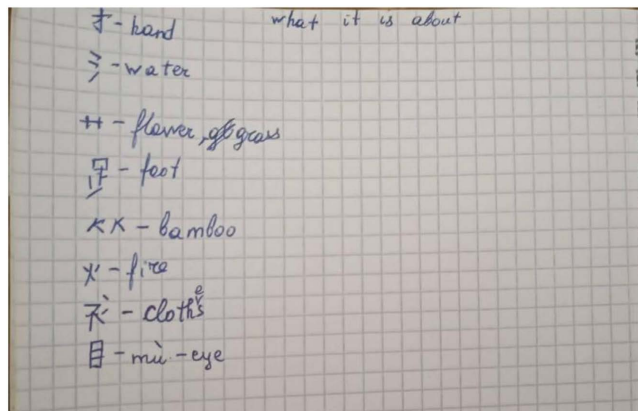 what it is about
扌- hand
氵- water
艹 - flower, grass
𧾷 - foot
⺮ - bamboo
火 - fire
衤 - clothes
目 - mù - eye